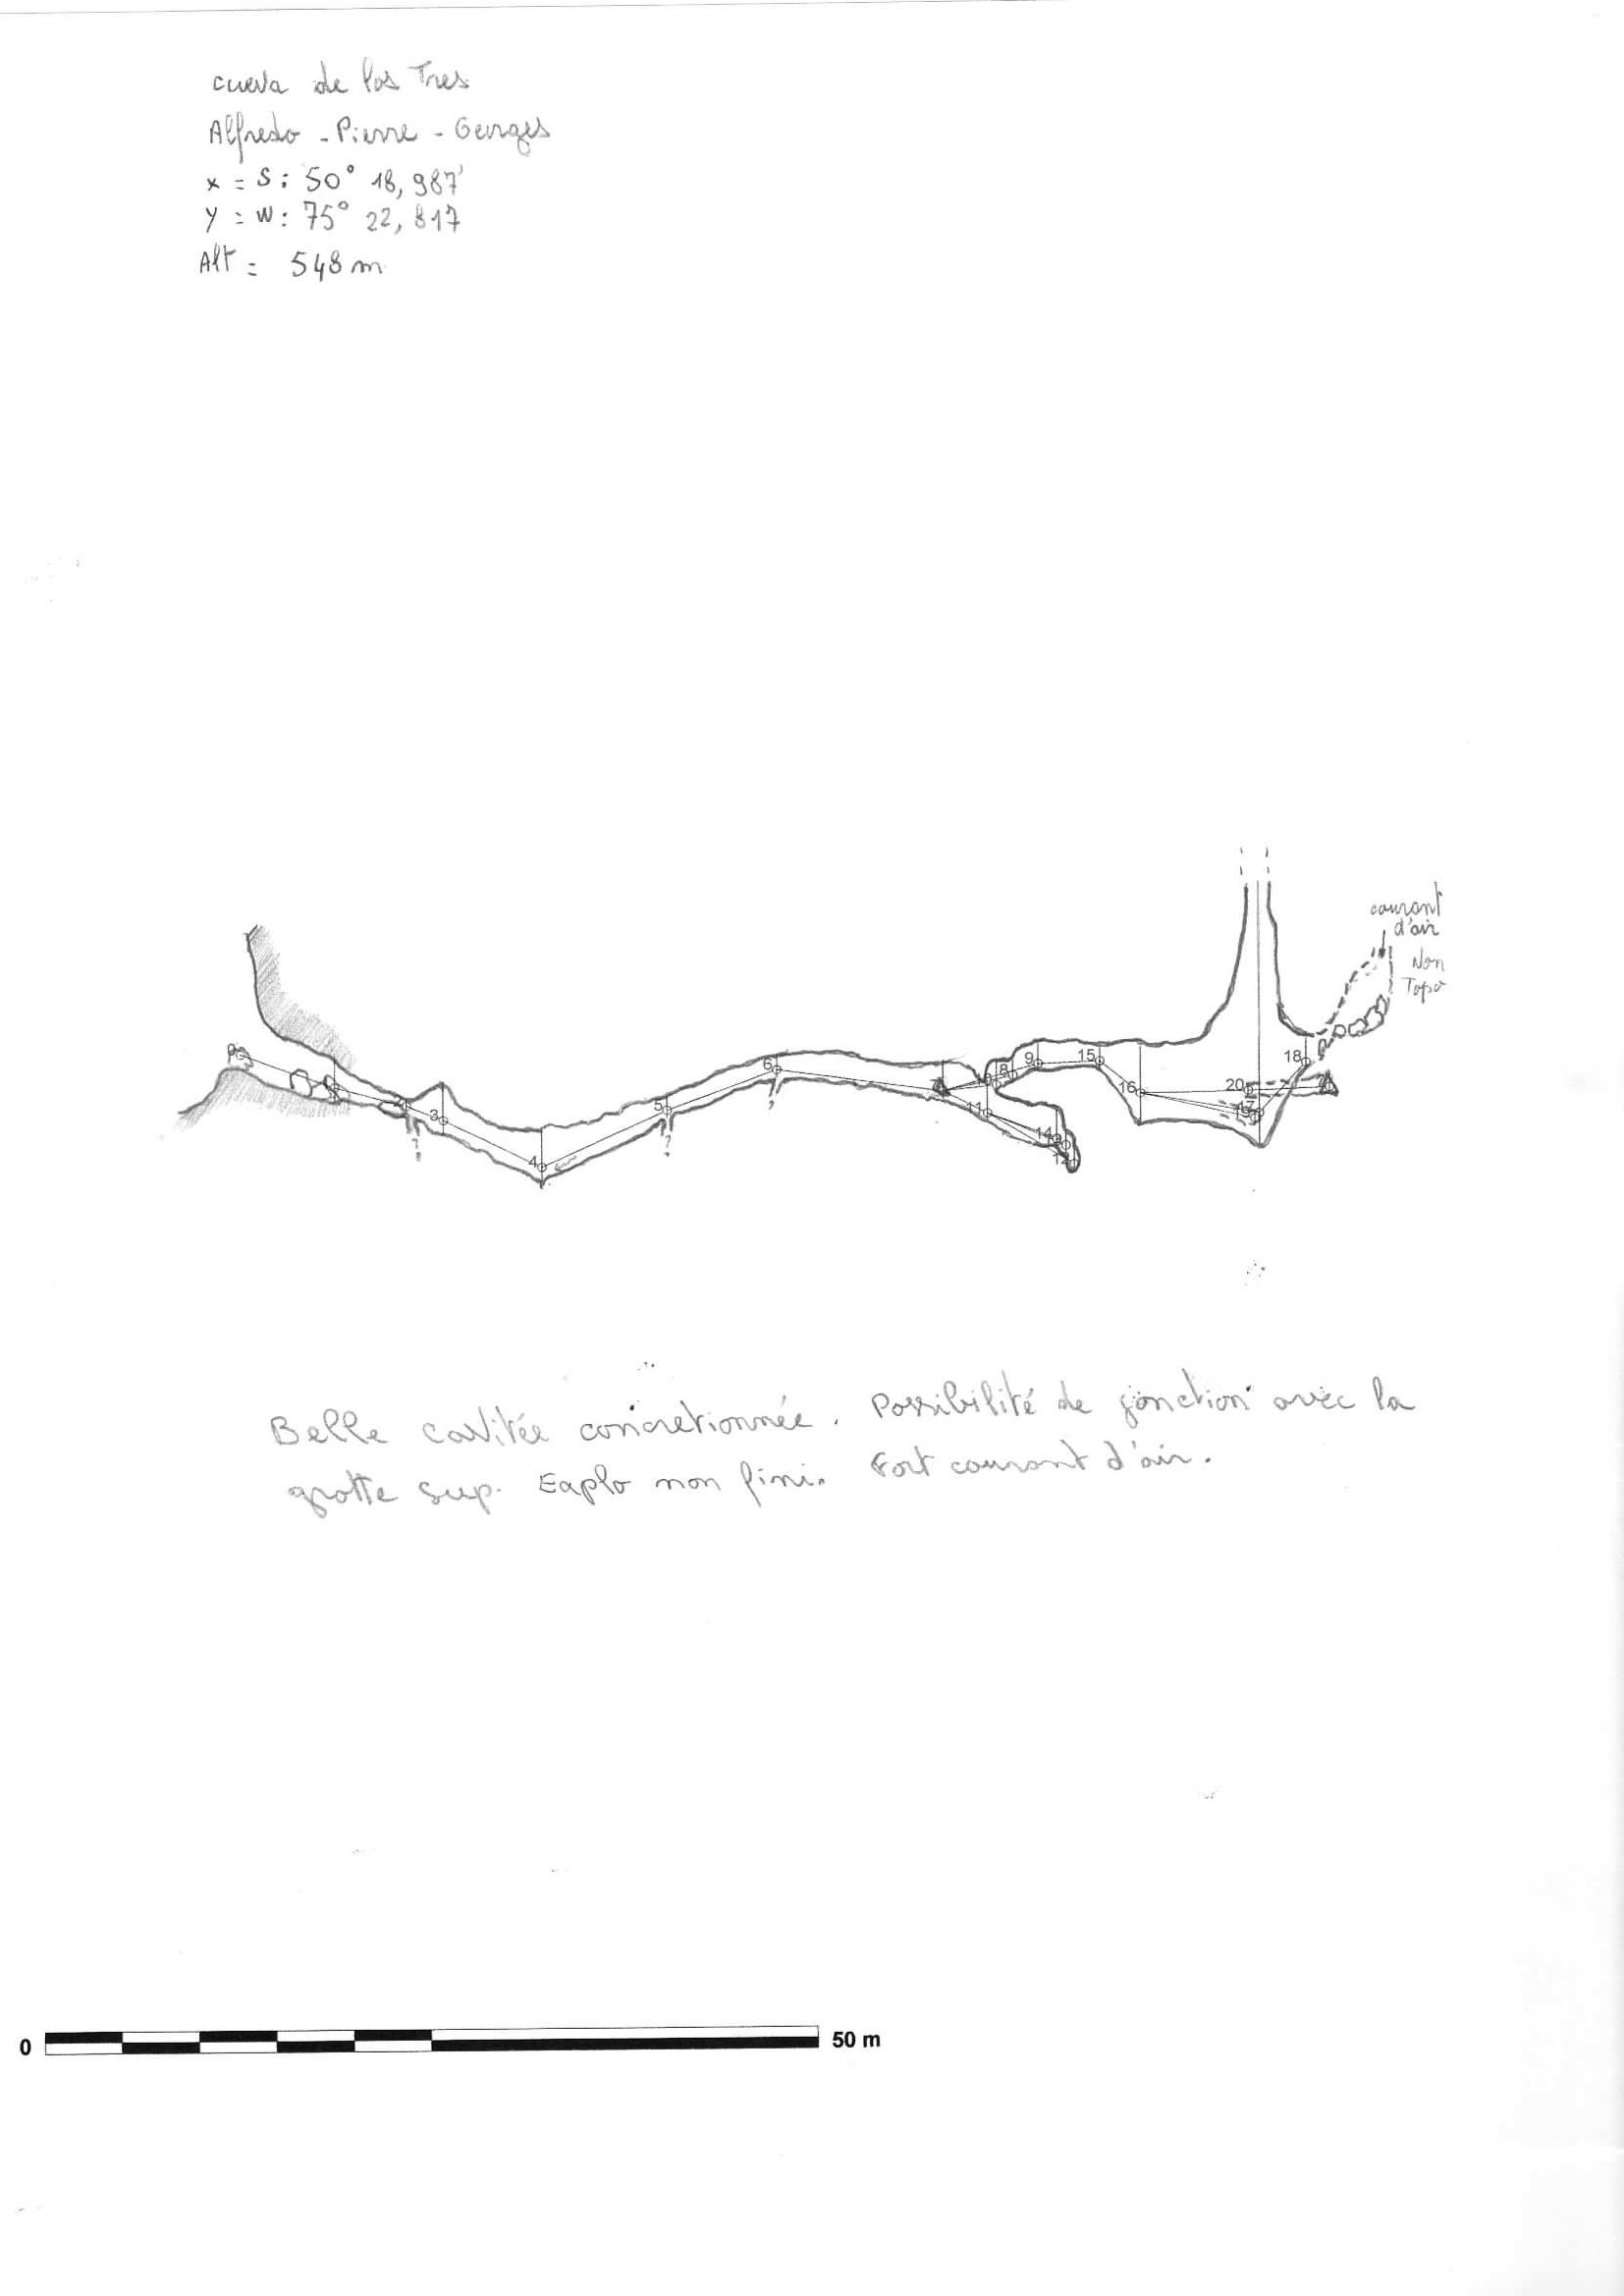 cueva de los Tres
Alfredo - Pierre - Georges
x = S : 50° 18,987'
y = W : 75° 22,817
Alt = 548 m
courant
d'air
Non
Topo
0
2
3
4
5
6
7
8
9
11
14
15
16
17
18
20
?
?
?
Belle cavitée concretionnée. Possibilité de jonction avec la
grotte sup. Explo non fini. Fort courant d'air.
0 50 m